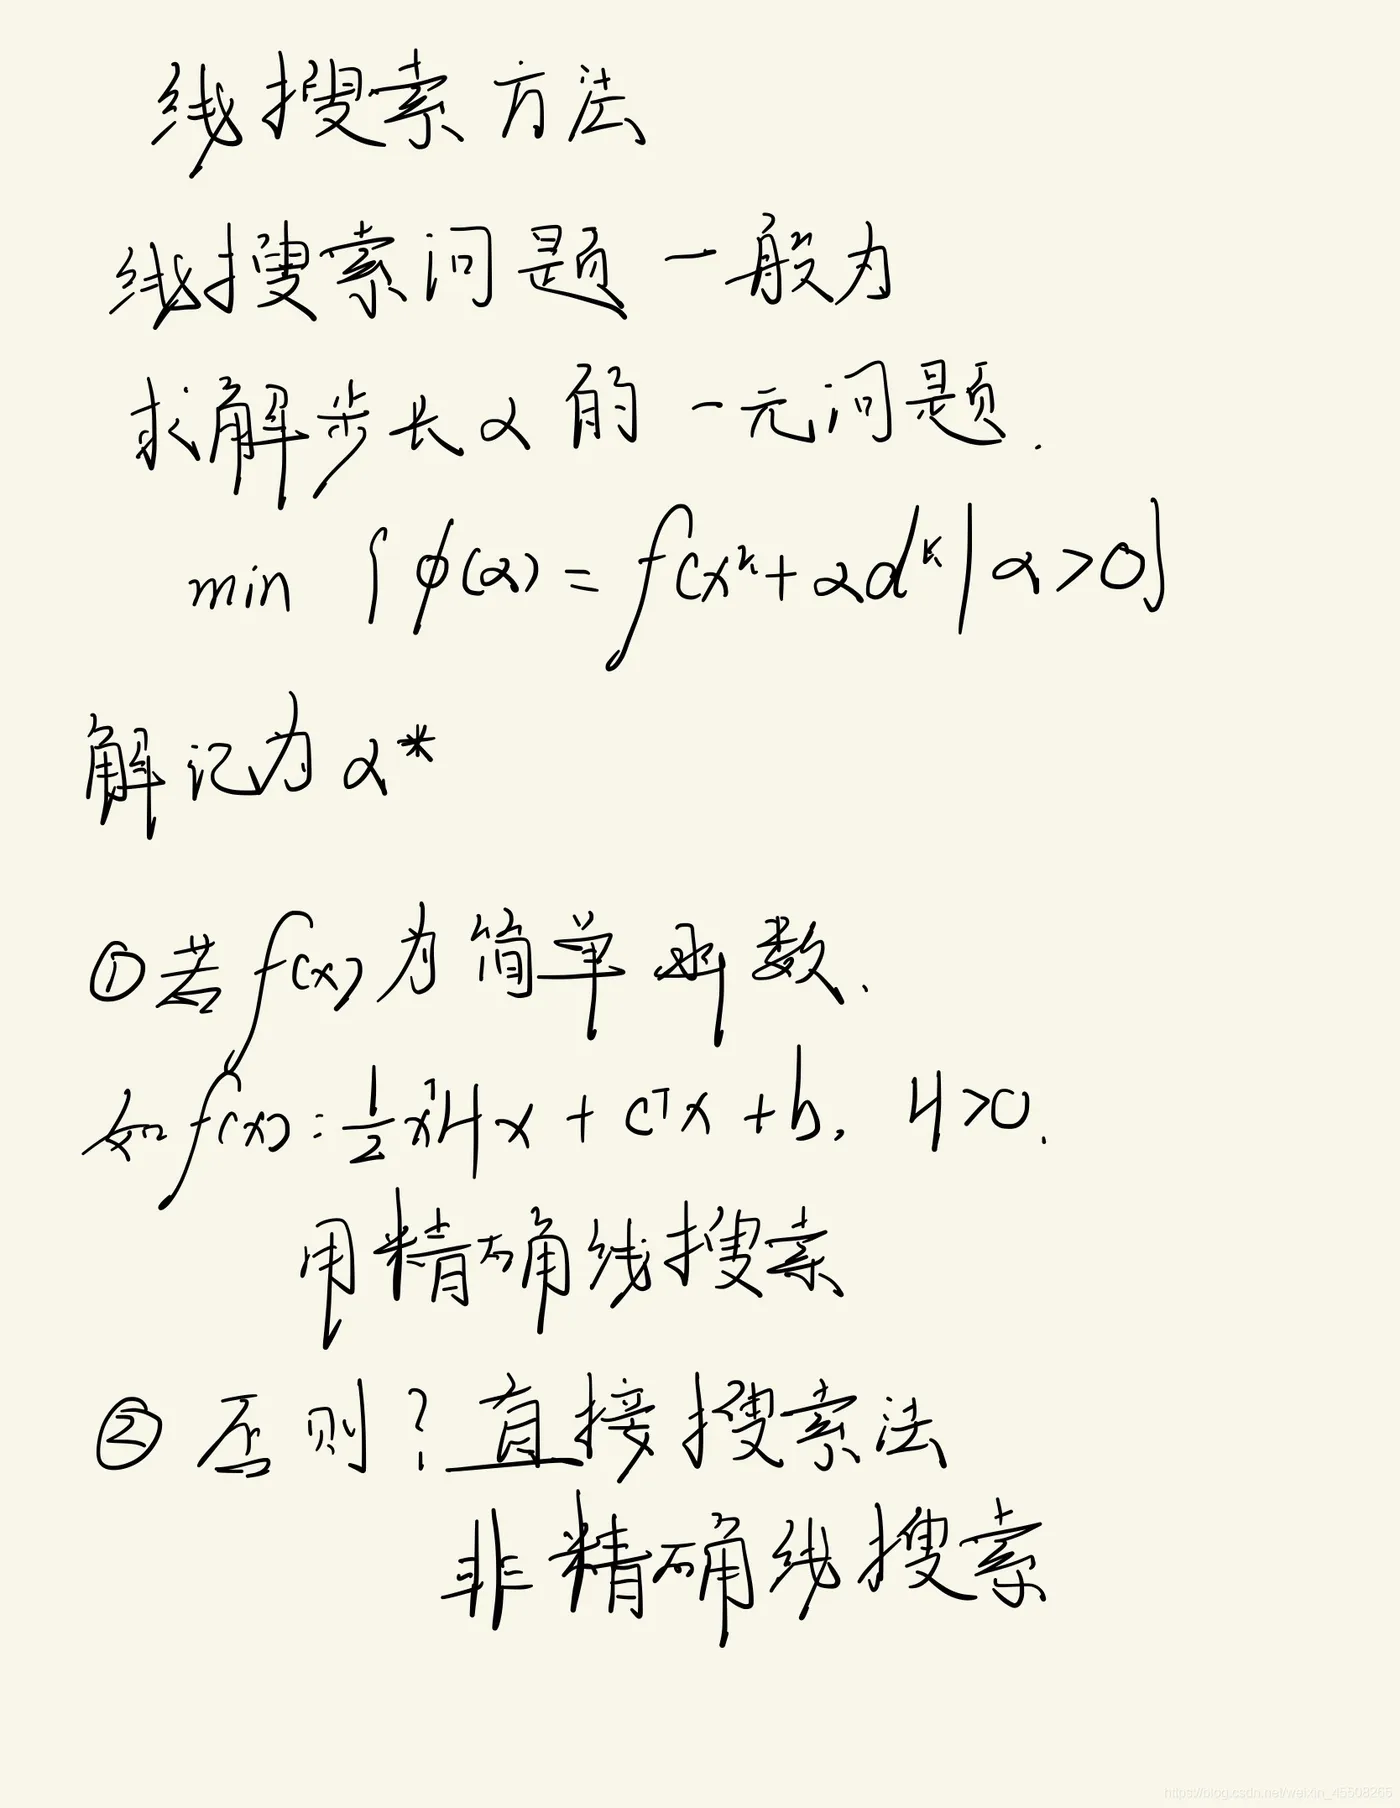 线搜索方法
线搜索问题一般为
求解步长α的一元问题.
min {φ(α) = f(xᵏ + αdᵏ | α>0}
解记为 α*
①若f(x)为简单函数.
如f(x) = 1/2 xᵀHx + cᵀx + b, H>0.
用精确线搜索
② 否则? 直接搜索法
非精确线搜索
https://blog.csdn.net/weixin_45508265